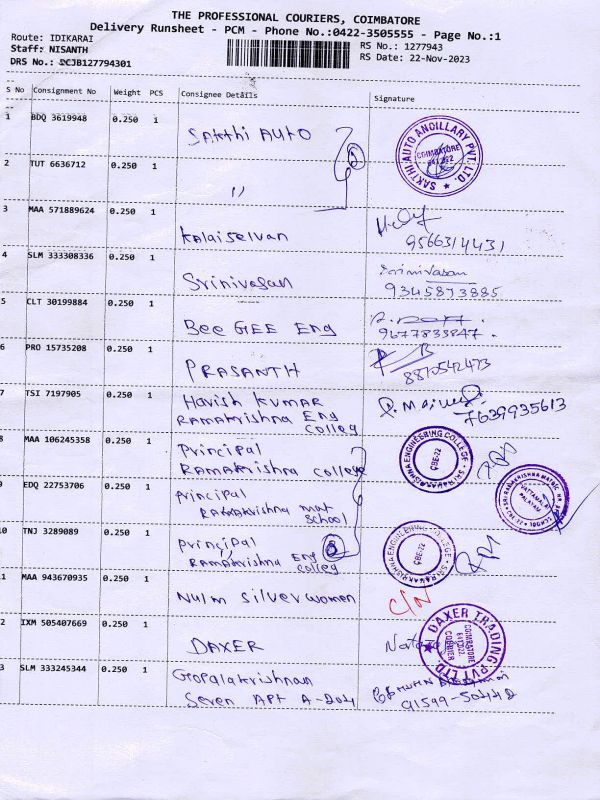 THE PROFESSIONAL COURIERS, COIMBATORE
Delivery Runsheet - PCM - Phone No.:0422-3505555 - Page No.:1
Route: IDIKARAI
RS No.: 1277943
Staff: NISANTH
RS Date: 22-Nov-2023
DRS No.: DCJB127794301
S No Consignment No Weight PCS Consignee Details Signature
1 BDQ 3619948 0.250 1 Sakthi AUTO
SAKTHI AUTO ANCILLARY PVT. LTD.
COIMBATORE
2 TUT 6636712 0.250 1 "
3 MAA 571889624 0.250 1 Kalaiselvan
9566314431
4 SLM 333308336 0.250 1 Srinivasan
Srinivasan
9345873885
5 CLT 30199884 0.250 1 Bee GEE Eng
9677833847.
6 PRO 15735208 0.250 1 PRASANTH
8870542473
7 TSI 7197905 0.250 1 Harish KUMAR
Ramakrishna Eng
colleg
7639935613
8 MAA 106245358 0.250 1 Principal
Ramakrishna college
SRI RAMAKRISHNA ENGINEERING COLLEGE
CBE-22
9 EDQ 22753706 0.250 1 Principal
Ramakrishna mat
School
10 TNJ 3289089 0.250 1 Principal
Ramakrishna Eng
colleg
SRI RAMAKRISHNA ENGINEERING COLLEGE
CBE-22
11 MAA 943670935 0.250 1 Nulm silverwomen
C/N
2 IXM 505407669 0.250 1 DAXER
DAXER TRADING PVT LTD.
COIMBATORE
641202.
COURIER
3 SLM 333245344 0.250 1 Gopalakrishnan
Seven Apt A-204
91599-50442